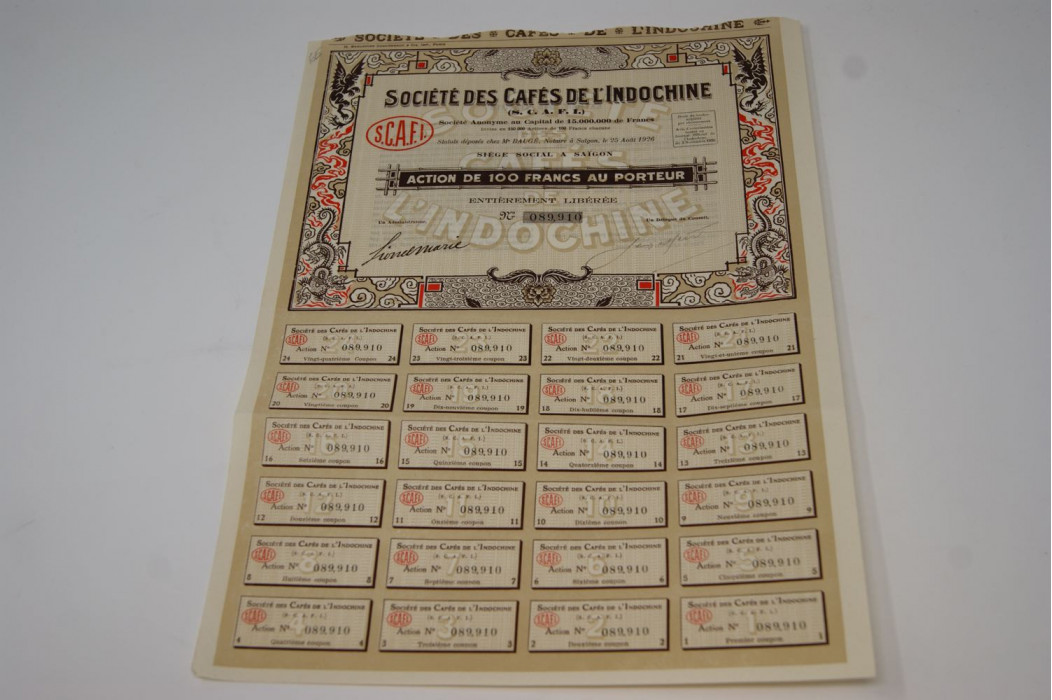 SOCIÉTÉ DES CAFÉS DE L'INDOCHINE
SOCIÉTÉ DES CAFÉS DE L'INDOCHINE
(S. C. A. F. I.)
Société Anonyme au Capital de 15.000.000 de Francs
divisé en 150.000 actions de 100 Francs chacune
S.C.A.F.I.
Statuts déposés chez Me BAUGÉ, Notaire à Saïgon, le 25 Août 1926
SIÈGE SOCIAL A SAÏGON
SOCIÉTÉ DES CAFÉS DE L'INDOCHINE
ACTION DE 100 FRANCS AU PORTEUR
ENTIÈREMENT LIBÉRÉE
No 089,910
Un Administrateur,
SOCIÉTÉ DES CAFÉS DE L'INDOCHINE
(S. C. A. F. I.)
SCAFI
Action No 089,910
24 Vingt-quatrième Coupon 24
SOCIÉTÉ DES CAFÉS DE L'INDOCHINE
(S. C. A. F. I.)
SCAFI
Action No 089,910
23 Vingt-troisième coupon 23
SOCIÉTÉ DES CAFÉS DE L'INDOCHINE
(S. C. A. F. I.)
SCAFI
Action No 089,910
22 Vingt-deuxième coupon 22
SOCIÉTÉ DES CAFÉS DE L'INDOCHINE
(S. C. A. F. I.)
SCAFI
Action No 089,910
21 Vingt-et-unième coupon 21
SOCIÉTÉ DES CAFÉS DE L'INDOCHINE
(S. C. A. F. I.)
SCAFI
Action No 089,910
20 Vingtième coupon 20
SOCIÉTÉ DES CAFÉS DE L'INDOCHINE
(S. C. A. F. I.)
SCAFI
Action No 089,910
19 Dix-neuvième coupon 19
SOCIÉTÉ DES CAFÉS DE L'INDOCHINE
(S. C. A. F. I.)
SCAFI
Action No 089,910
18 Dix-huitième coupon 18
SOCIÉTÉ DES CAFÉS DE L'INDOCHINE
(S. C. A. F. I.)
SCAFI
Action No 089,910
17 Dix-septième coupon 17
SOCIÉTÉ DES CAFÉS DE L'INDOCHINE
(S. C. A. F. I.)
SCAFI
Action No 089,910
16 Seizième coupon 16
SOCIÉTÉ DES CAFÉS DE L'INDOCHINE
(S. C. A. F. I.)
SCAFI
Action No 089,910
15 Quinzième coupon 15
SOCIÉTÉ DES CAFÉS DE L'INDOCHINE
(S. C. A. F. I.)
SCAFI
Action No 089,910
14 Quatorzième coupon 14
SOCIÉTÉ DES CAFÉS DE L'INDOCHINE
(S. C. A. F. I.)
SCAFI
Action No 089,910
13 Treizième coupon 13
SOCIÉTÉ DES CAFÉS DE L'INDOCHINE
(S. C. A. F. I.)
SCAFI
Action No 089,910
12 Douzième coupon 12
SOCIÉTÉ DES CAFÉS DE L'INDOCHINE
(S. C. A. F. I.)
SCAFI
Action No 089,910
11 Onzième coupon 11
SOCIÉTÉ DES CAFÉS DE L'INDOCHINE
(S. C. A. F. I.)
SCAFI
Action No 089,910
10 Dixième coupon 10
SOCIÉTÉ DES CAFÉS DE L'INDOCHINE
(S. C. A. F. I.)
SCAFI
Action No 089,910
9 Neuvième coupon 9
SOCIÉTÉ DES CAFÉS DE L'INDOCHINE
(S. C. A. F. I.)
SCAFI
Action No 089,910
8 Huitième coupon 8
SOCIÉTÉ DES CAFÉS DE L'INDOCHINE
(S. C. A. F. I.)
SCAFI
Action No 089,910
7 Septième coupon 7
SOCIÉTÉ DES CAFÉS DE L'INDOCHINE
(S. C. A. F. I.)
SCAFI
Action No 089,910
6 Sixième coupon 6
SOCIÉTÉ DES CAFÉS DE L'INDOCHINE
(S. C. A. F. I.)
SCAFI
Action No 089,910
5 Cinquième coupon 5
SOCIÉTÉ DES CAFÉS DE L'INDOCHINE
(S. C. A. F. I.)
SCAFI
Action No 089,910
4 Quatrième coupon 4
SOCIÉTÉ DES CAFÉS DE L'INDOCHINE
(S. C. A. F. I.)
SCAFI
Action No 089,910
3 Troisième coupon 3
SOCIÉTÉ DES CAFÉS DE L'INDOCHINE
(S. C. A. F. I.)
SCAFI
Action No 089,910
2 Deuxième coupon 2
SOCIÉTÉ DES CAFÉS DE L'INDOCHINE
(S. C. A. F. I.)
SCAFI
Action No 089,910
1 Premier coupon 1